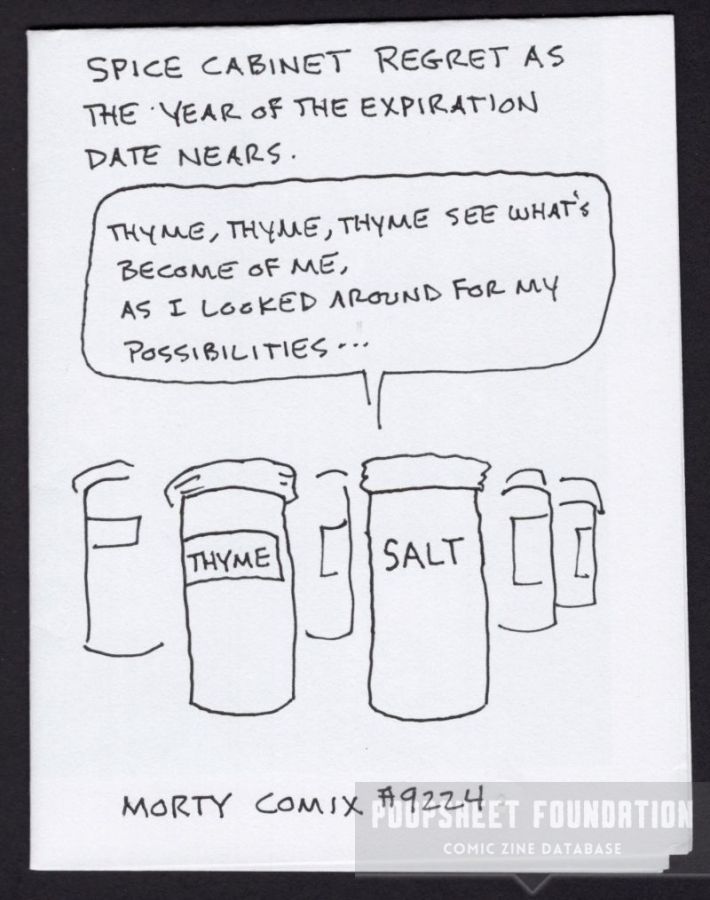 SPICE CABINET REGRET AS
THE YEAR OF THE EXPIRATION
DATE NEARS.
THYME, THYME, THYME SEE WHAT'S
BECOME OF ME,
AS I LOOKED AROUND FOR MY
POSSIBILITIES...
THYME
SALT
MORTY COMIX #9224
POOPSHEET FOUNDATION
COMIC ZINE DATABASE